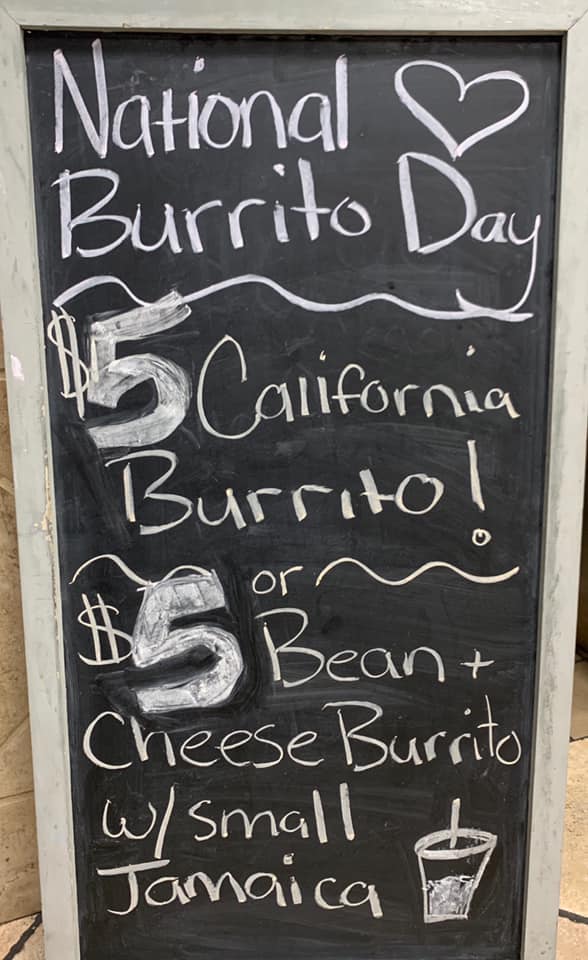 National
Burrito Day
$5 California
Burrito!
or
$5 Bean +
Cheese Burrito
w/ small
Jamaica